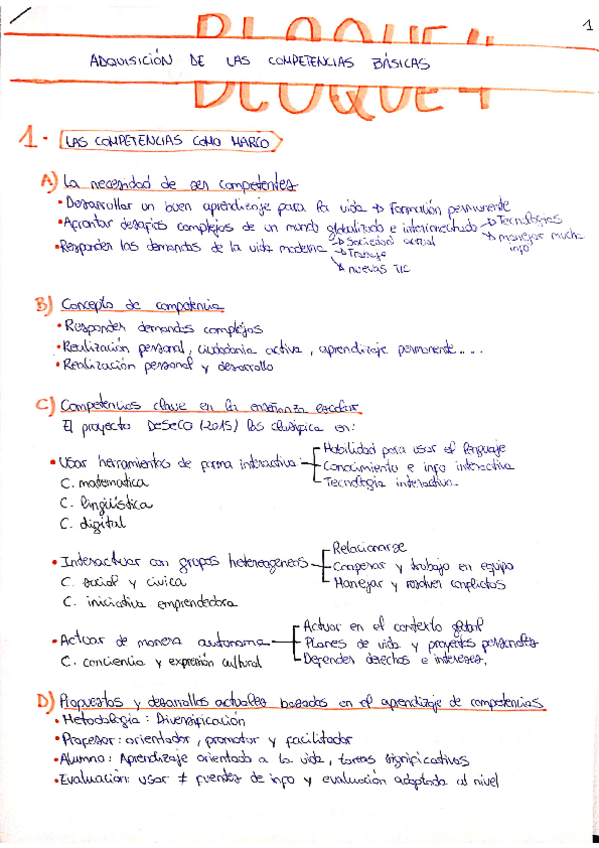 1
BLOQUE 4
ADQUISICIÓN DE LAS COMPETENCIAS BÁSICAS
1. LAS COMPETENCIAS COMO MARCO
A) La necesidad de ser competentes
• Desarrollar un buen aprendizaje para la vida → Formación permanente
• Afrontar desafíos complejos de un mundo globalizado e interconectado → Tecnologías
→ manejar mucha info
• Responder las demandas de la vida moderna → Sociedad actual
→ Trabajo
→ nuevas TIC
B) Concepto de competencia
• Responder demandas complejas
• Realización personal, ciudadanía activa, aprendizaje permanente....
• Realización personal y desarrollo
C) Competencias clave en la enseñanza escolar
El proyecto DeSeCo (2015) las clasifica en:
• Usar herramientas de forma interactiva
Habilidad para usar el lenguaje
Conocimiento e info interactiva
Tecnología interactiva.
C. matemática
C. lingüística
C. digital
• Interactuar con grupos heterogéneos
Relacionarse
Cooperar y trabajo en equipo
Manejar y resolver conflictos
C. social y cívica
C. iniciativa emprendedora
• Actuar de manera autónoma
Actuar en el contexto global
Planes de vida y proyectos personales
Defender derechos e intereses.
C. conciencia y expresión cultural
D) Propuestas y desarrollos actuales basados en el aprendizaje de competencias
• Metodología: Diversificación
• Profesor: orientador, promotor y facilitador
• Alumno: Aprendizaje orientado a la vida, tareas significativas
• Evaluación: usar ≠ fuentes de info y evaluación adaptada al nivel